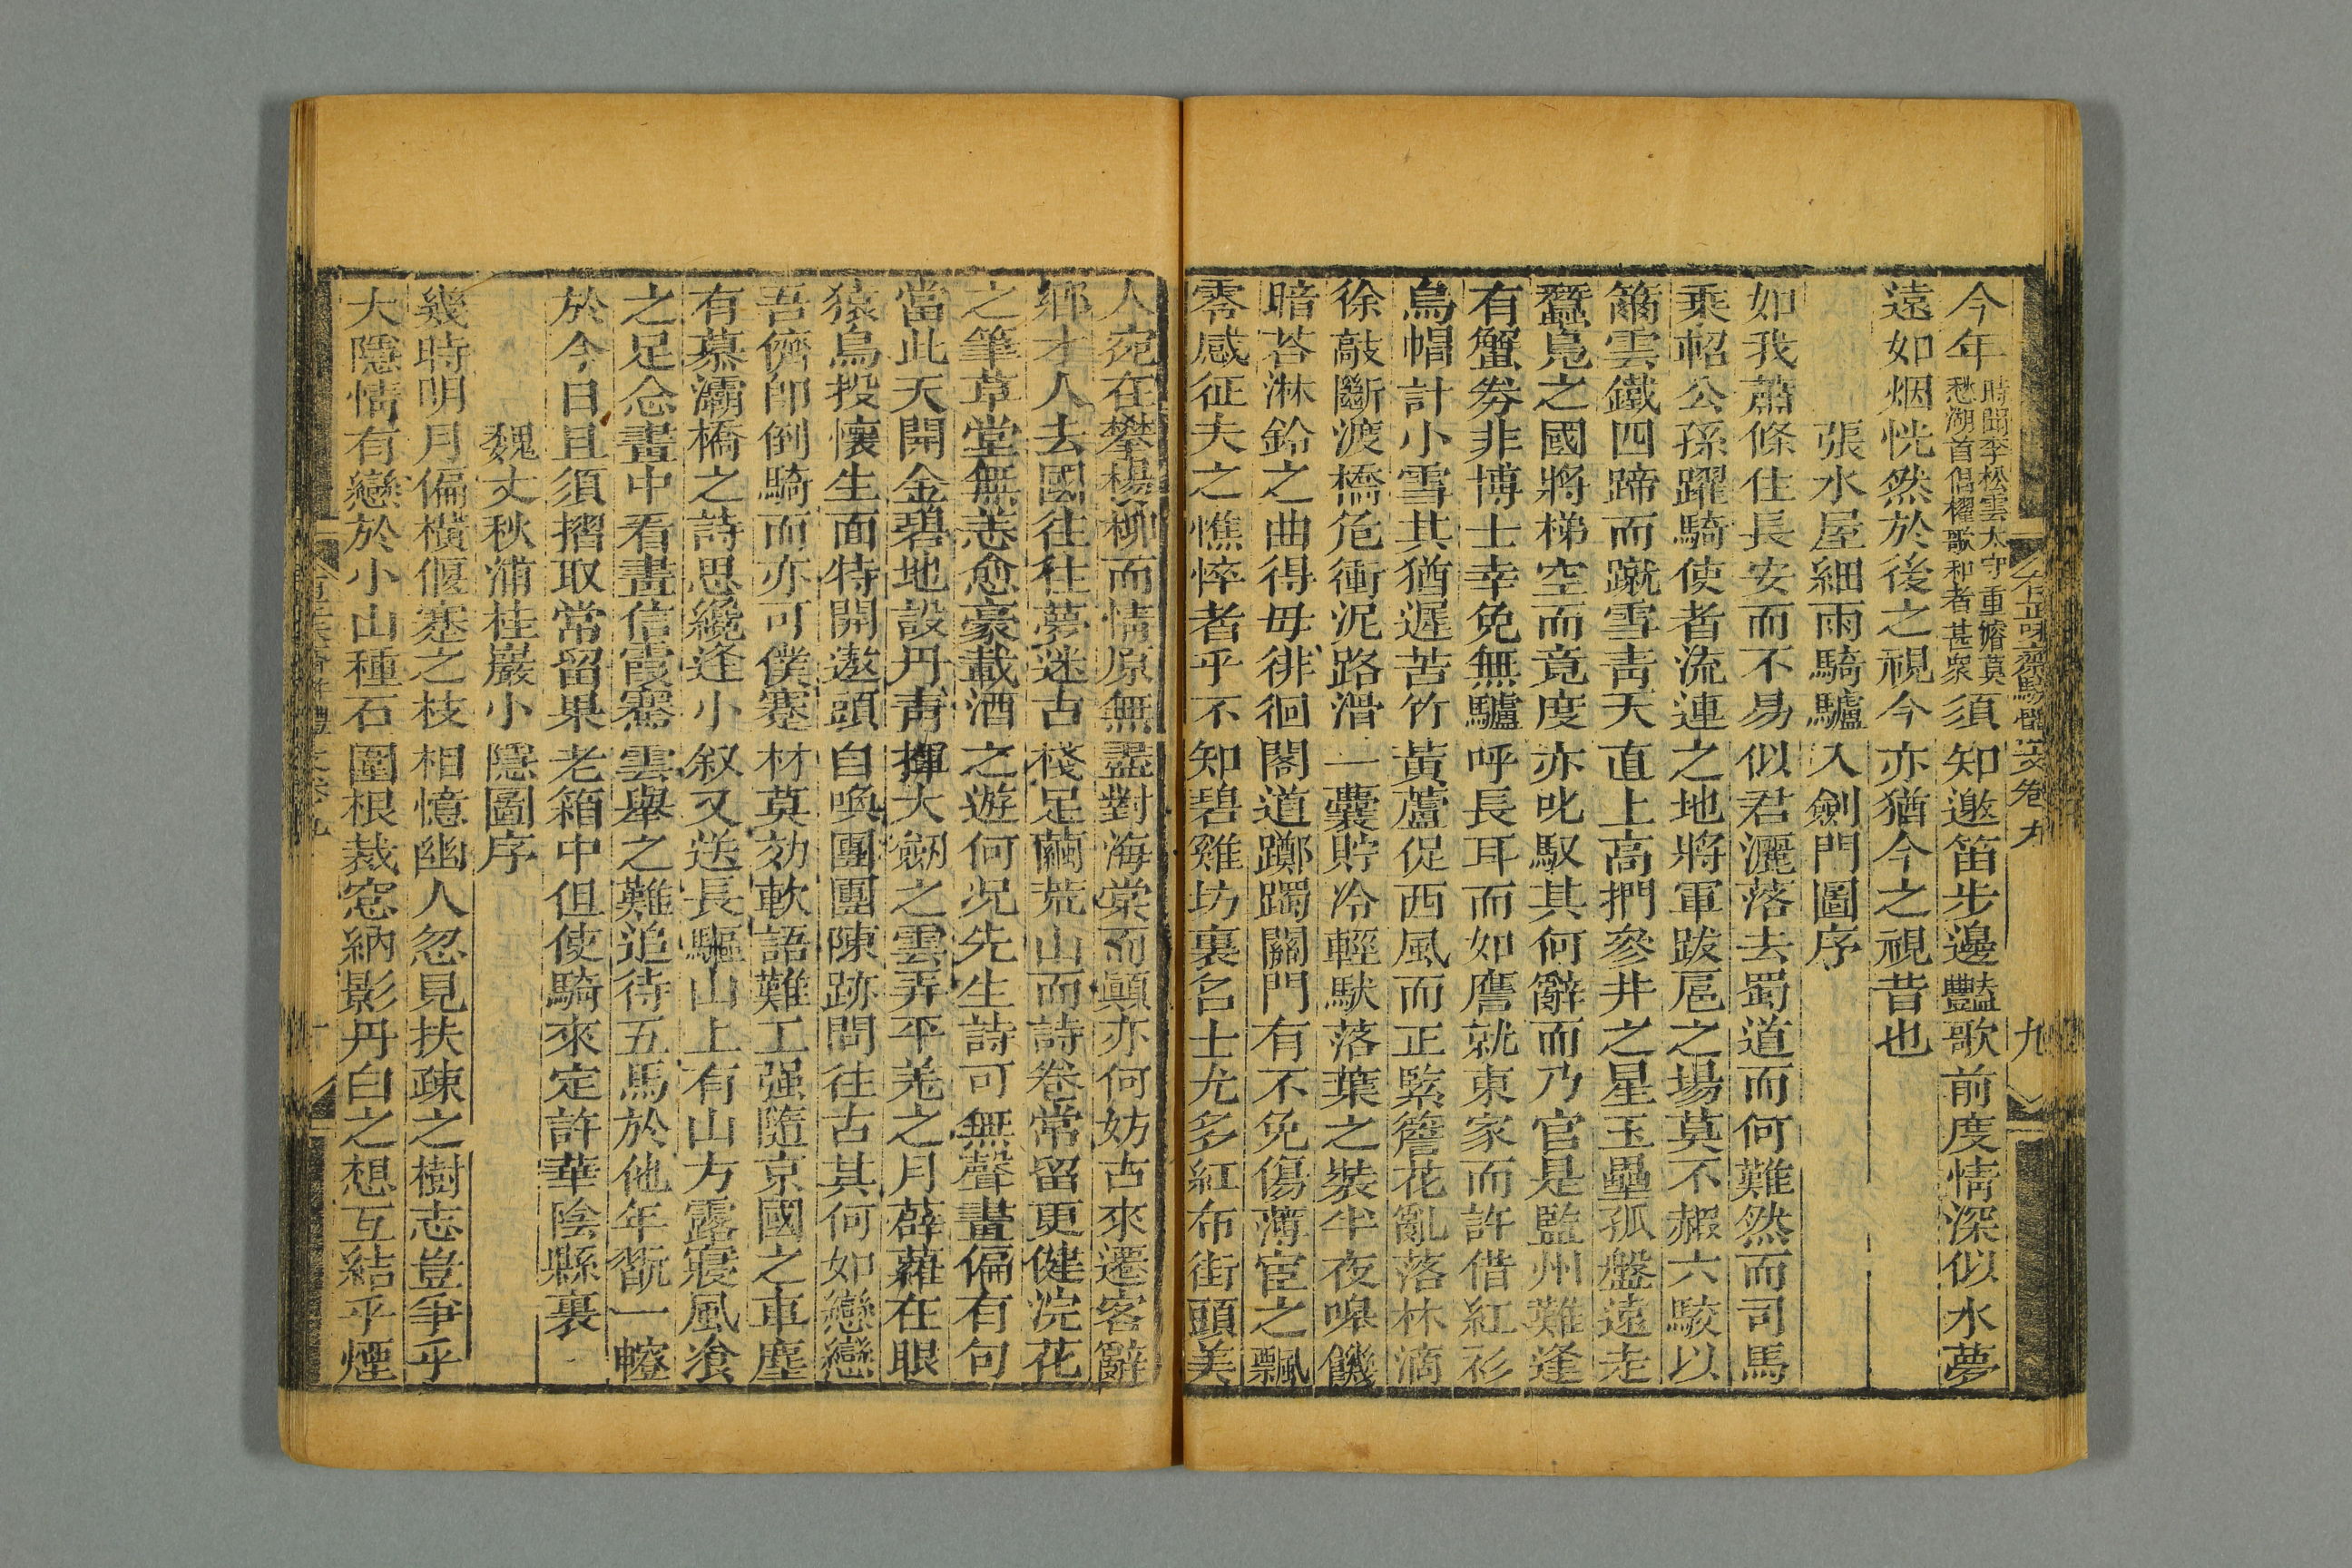 有正味齋駢體文卷九 九
今年時聞李松雲太守重濬莫愁湖首倡櫂歌和者甚衆須知邀笛步邊豔歌前度情深似水夢
遠如烟恍然於後之視今亦猶今之視昔也
張水屋細雨騎驢入劍門圖序
如我蕭條住長安而不易似君灑落去蜀道而何難然而司馬
乘軺公孫躍騎使者流連之地將軍跋扈之場莫不赮六駮以
籋雲鐵四蹄而蹴雪靑天直上高捫參井之星玉壘孤盤遠走
蠶鳧之國將梯空而竟度亦叱馭其何辭而乃官是監州難逢
有蟹劵非博士幸免無驢呼長耳而如膺就東家而許借紅衫
烏帽計小雪其猶遲苦竹黃蘆促西風而正緊簷花亂落林滴
徐敲斷渡橋危衝泥路滑一囊貯冷輕馱落葉之裝半夜嘷饑
暗荅淋鈴之曲得毋徘徊閣道躑躅關門有不免傷薄宦之飄
零感征夫之憔悴者乎不知碧雞坊裏名士尤多紅布街頭美
人宛在攀楊柳而情原無盡對海棠而顛亦何妨古來遷客辭
鄉才人去國往往夢迷古棧足繭荒山而詩卷常留更健浣花
之筆草堂無恙愈豪載酒之遊何况先生詩可無聲畫偏有句
當此天開金碧地設丹靑揮大劒之雲弄平羌之月薜蘿在眼
猿鳥投懷生面特開遨頭自喚團團陳跡問往古其何如戀戀
吾儕卽倒騎而亦可僕蹇材莫効軟語難工强隨京國之車塵
有慕灞橋之詩思纔逢小叙又送長驅山上有山方露寢風飡
之足念畫中看畫信霞騫雲舉之難追待五馬於他年翫一㡧
於今日且須摺取常留果老箱中但使騎來定許華陰縣裏
魏丈秋浦桂巖小隱圖序
幾時明月偏橫偃蹇之枝相憶幽人忽見扶疎之樹志豈爭乎
大隱情有戀於小山種石圍根裁窓納影丹白之想互結乎煙